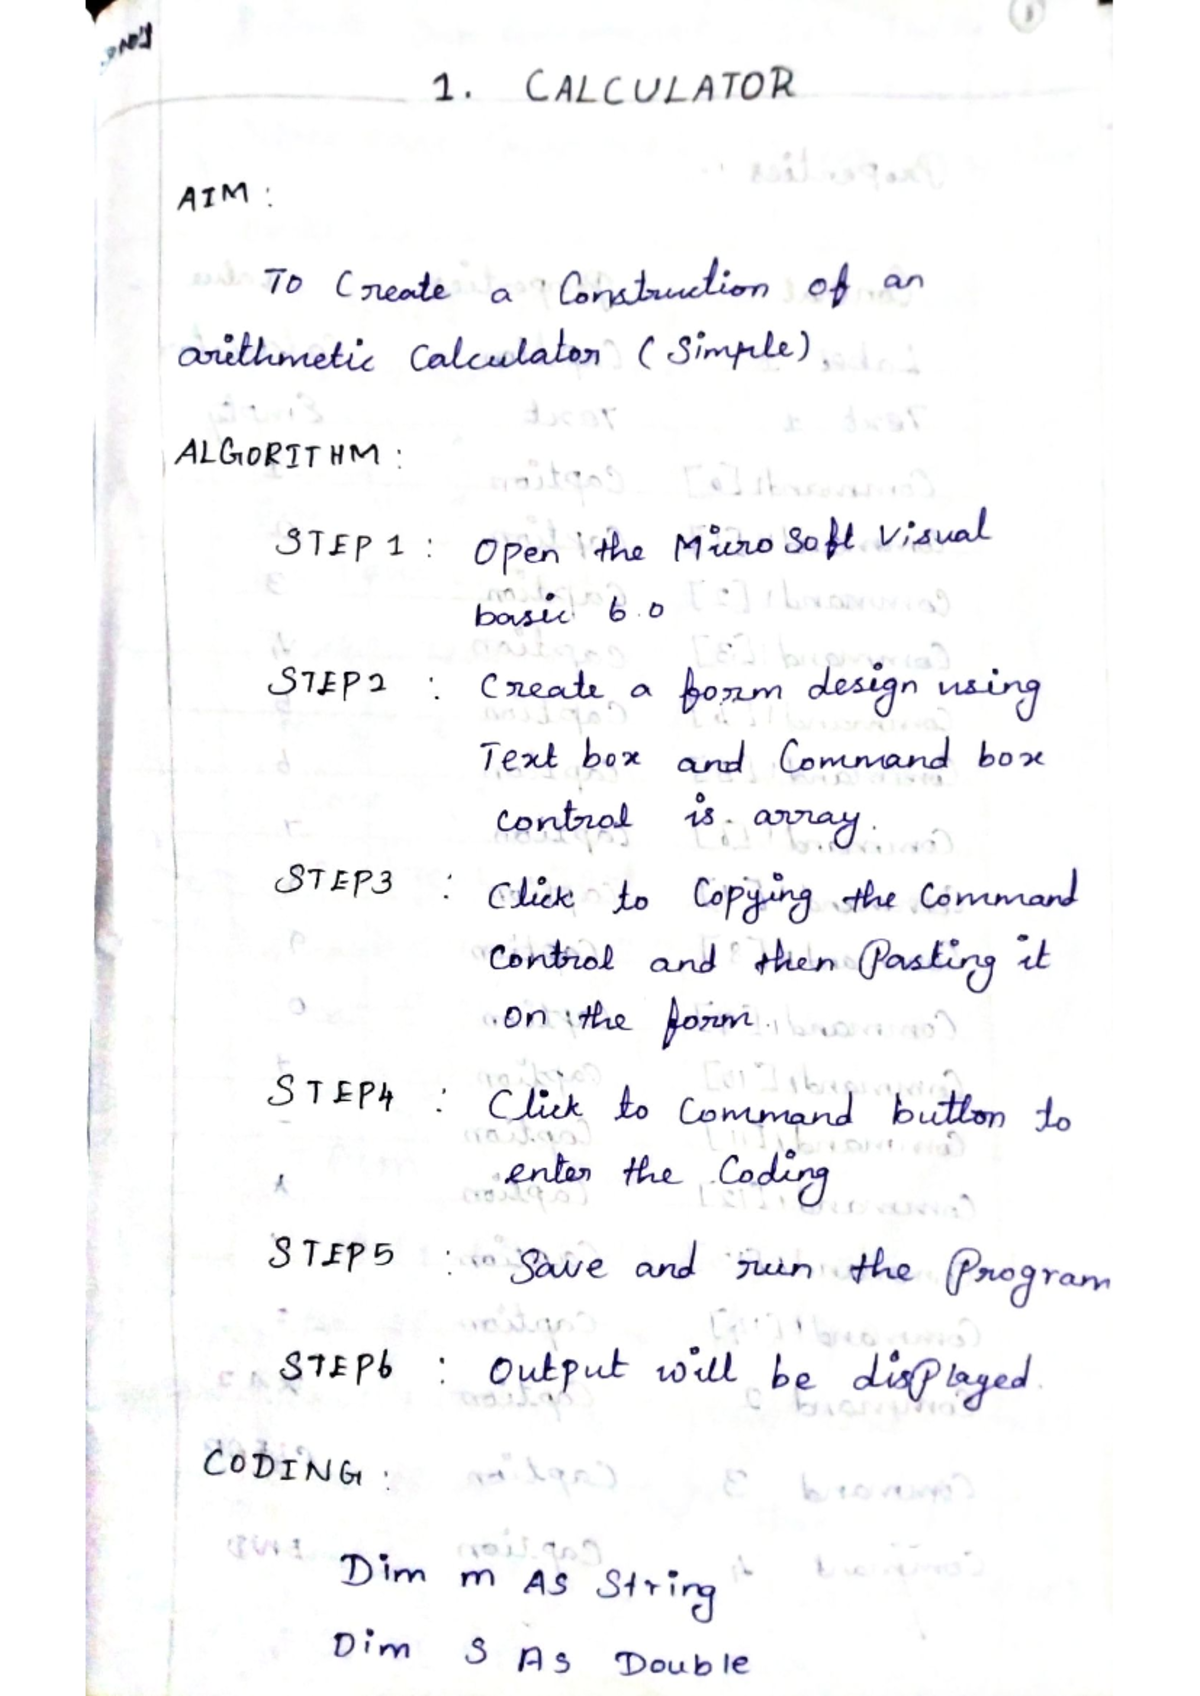 1. CALCULATOR
AIM :
To Create a Construction of an
arithmetic Calculator (Simple)
ALGORITHM :
STEP 1 : Open the Microsoft Visual
basic 6.0
STEP2 : Create a form design using
Text box and Command box
control is array.
STEP3 : Click to Copying the Command
Control and then Pasting it
on the form.
STEP4 : Click to Command button to
enter the Coding
STEP5 : Save and run the Program
STEP6 : Output will be displayed.
CODING :
Dim m As String
Dim S As Double